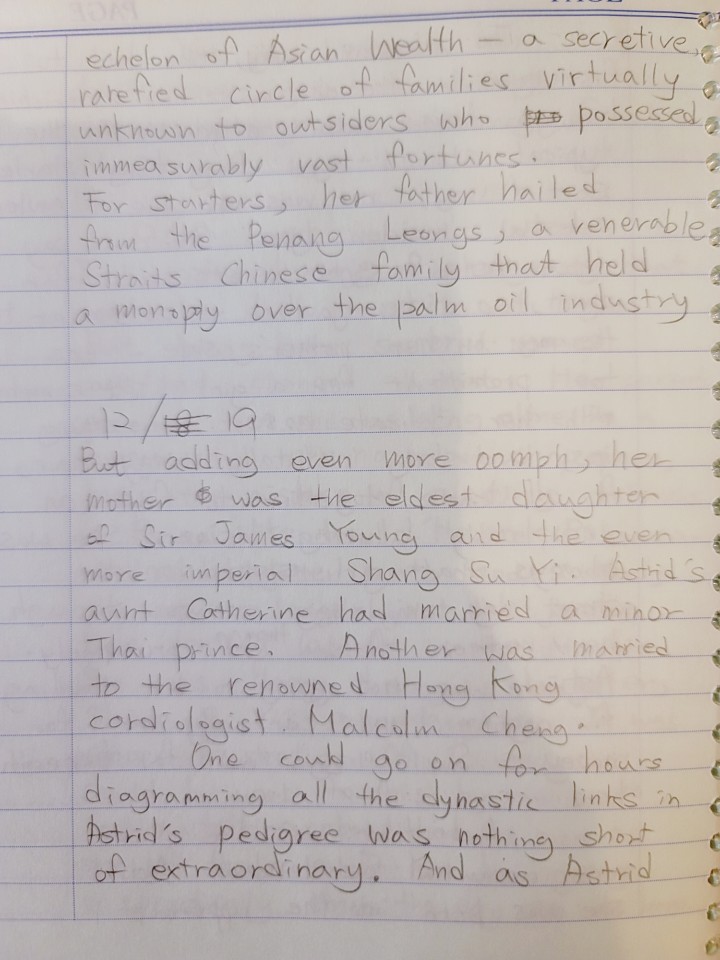 echelon of Asian Wealth — a secretive,
rarefied circle of families virtually
unknown to outsiders who possessed
immeasurably vast fortunes.
For starters, her father hailed
from the Penang Leongs, a venerable
Straits Chinese family that held
a monoply over the palm oil industry
12/19
But adding even more oomph, her
mother was the eldest daughter
of Sir James Young and the even
more imperial Shang Su Yi. Astrid's
aunt Catherine had married a minor
Thai prince. Another was married
to the renowned Hong Kong
cordiologist. Malcolm Cheng.
One could go on for hours
diagramming all the dynastic links in
Astrid's pedigree was nothing short
of extraordinary. And as Astrid